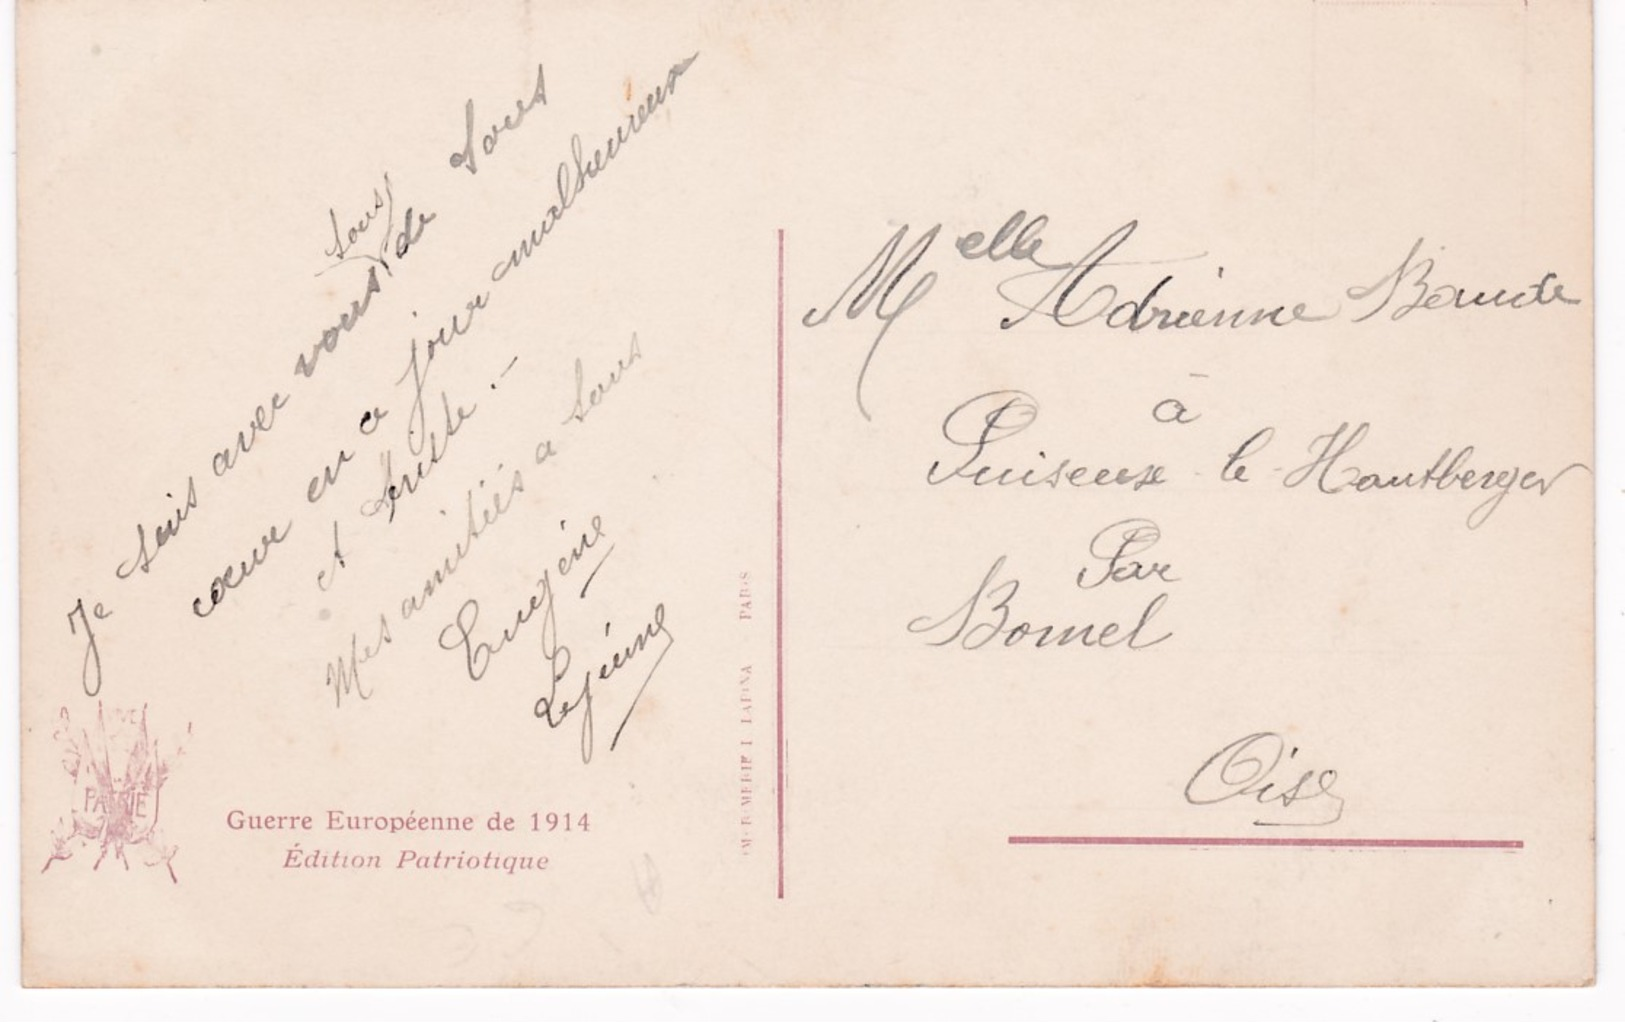 Je suis avec vous tous de tout
cœur en a jour malheureux
et triste . –
Mes amitiés a tous
Eugénie
Lejeune
VIVE
PATRIE
Guerre Européenne de 1914
Édition Patriotique
LAPINA PARIS
Melle Adrienne Baude
à
Puiseux - le - Hautberger
Par
Bornel
Oise